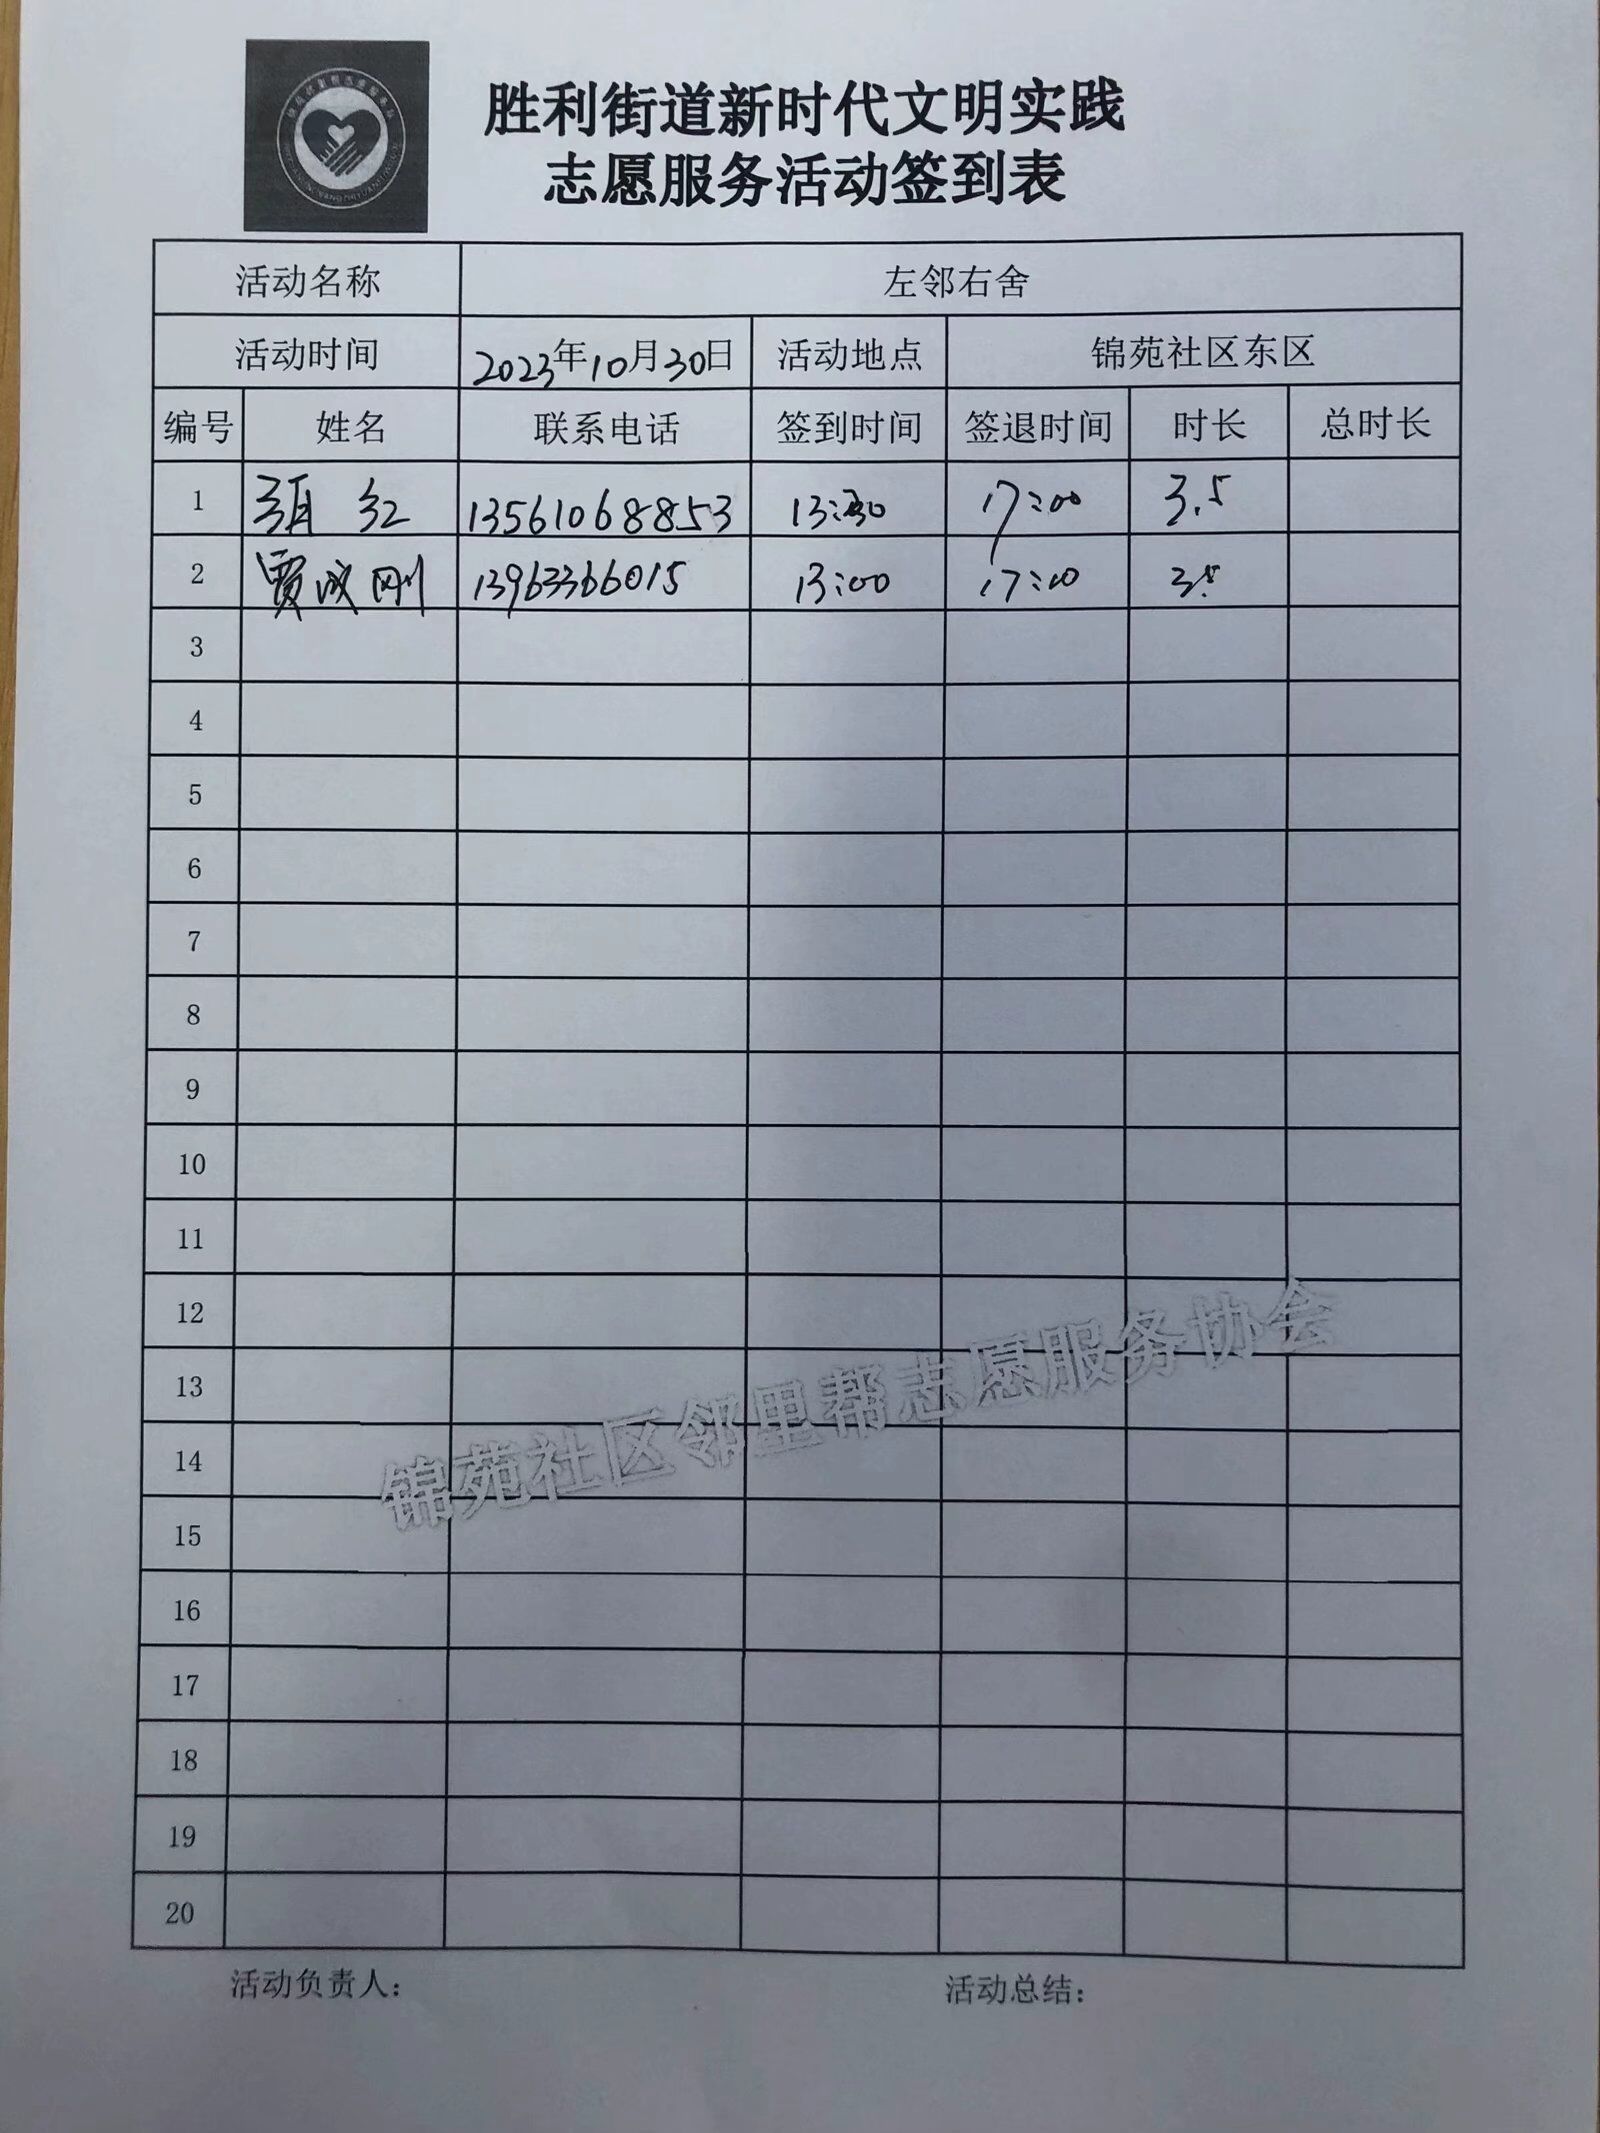 胜利街道新时代文明实践
志愿服务活动签到表
活动名称 左邻右舍
活动时间 2023年10月30日 活动地点 锦苑社区东区
编号 姓名 联系电话 签到时间 签退时间 时长 总时长
1 红 13561068853 13:30 17:00 3.5
2 贾成刚 13963366015 13:00 17:00 3.5
3
4
5
6
7
8
9
10
11
12
13
14
15
16
17
18
19
20
锦苑社区邻里帮志愿服务协会
活动负责人: 活动总结: